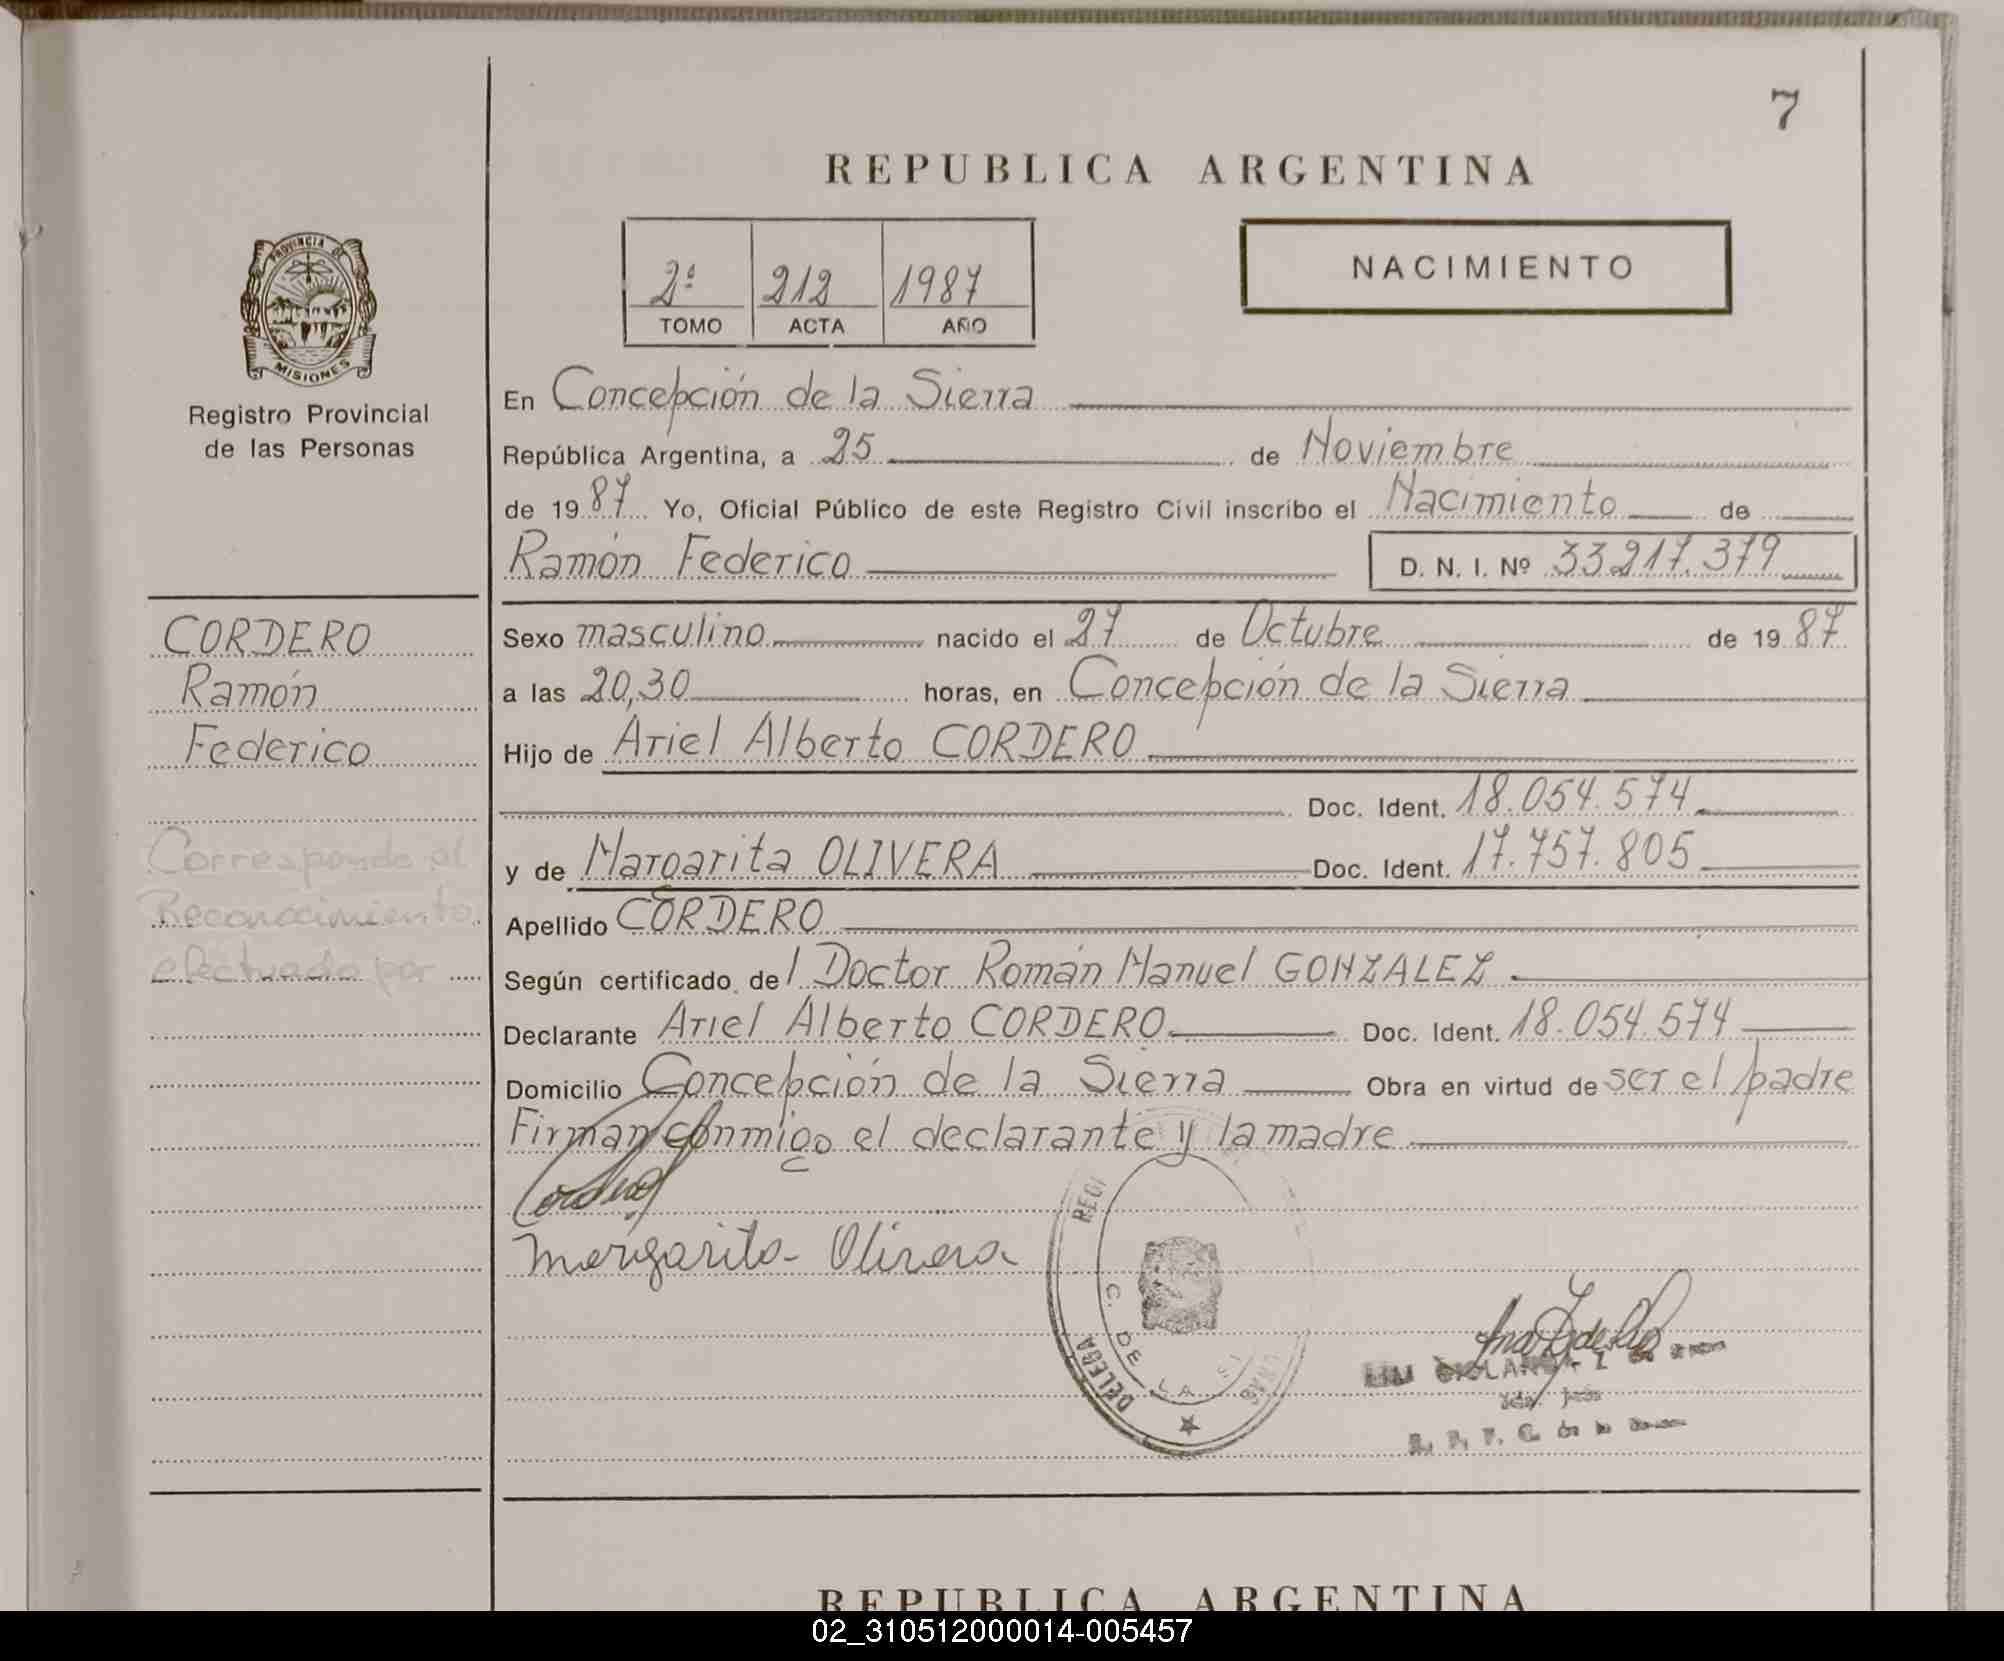 7
REPUBLICA ARGENTINA
2ª 212 1987
TOMO ACTA AÑO
NACIMIENTO
PROVINCIA DE
MISIONES
Registro Provincial
de las Personas
En Concepción de la Sierra
República Argentina, a 25 de Noviembre
de 1987 Yo, Oficial Público de este Registro Civil inscribo el Nacimiento de
Ramón Federico D. N. I. Nº 33.217.379
CORDERO
Ramón
Federico
Corresponde al
Reconocimiento
efectuado por
Sexo masculino nacido el 27 de Octubre de 1987
a las 20,30 horas, en Concepción de la Sierra
Hijo de Ariel Alberto CORDERO
Doc. Ident. 18.054.574
y de Margarita OLIVERA Doc. Ident. 17.757.805
Apellido CORDERO
Según certificado de l Doctor Román Manuel GONZALEZ
Declarante Ariel Alberto CORDERO Doc. Ident. 18.054.574
Domicilio Concepción de la Sierra Obra en virtud de ser el padre
Firman conmigo el declarante y la madre
Cordero
Margarita Olivera
C. DE LA
DELEGA
REPUBLICA ARGENTINA
02_310512000014-005457